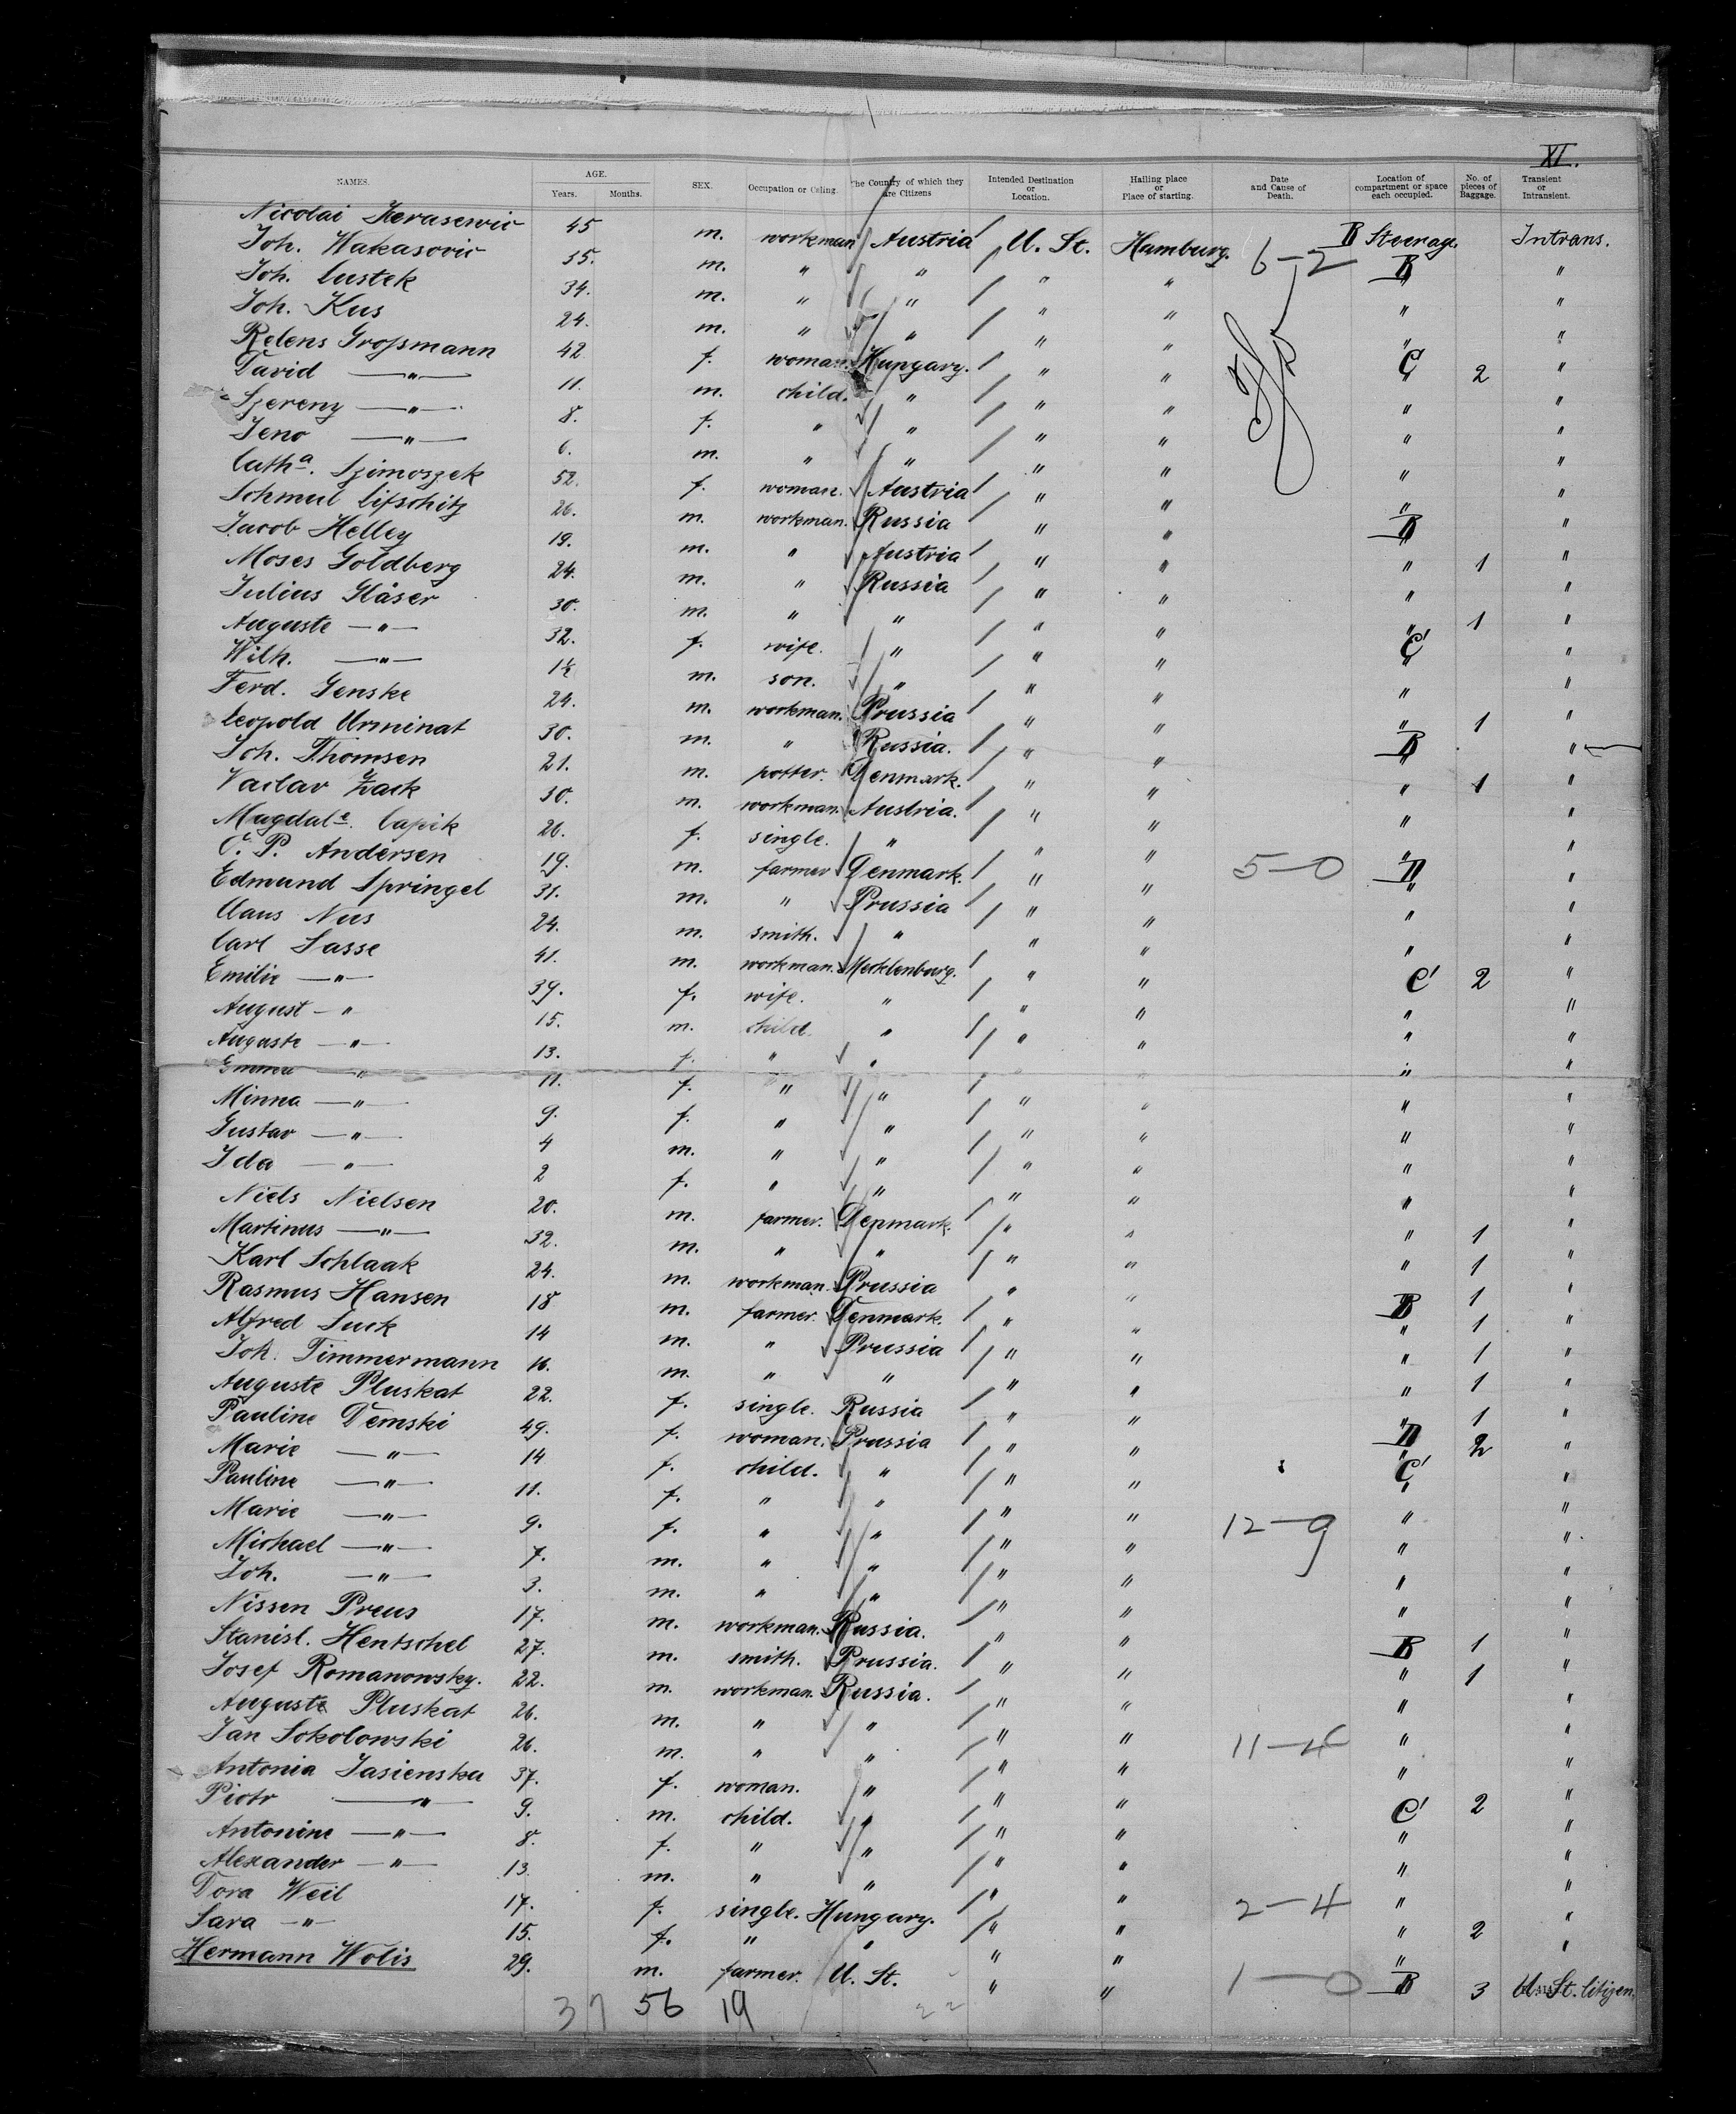 XI.
NAMES. AGE. Years. Months. SEX. Occupation or Calling. The Country of which they are Citizens Intended Destination or Location. Hailing place or Place of starting. Date and Cause of Death. Location of compartment or space each occupied. No. of pieces of Baggage. Transient or Intransient.
Nicolai 45 m. workman Austria U. St. Hamburg. B Steerage. Intrans.
Joh. Wakasovic 35. m. " " " " 6-2 B "
Joh. Custek 34. m. " " " " " "
Joh. Kus 24. m. " " " " " "
Relens Großmann 42 f. woman. Hungary. " " C 2 "
David —"— 11. m. child. " " " " "
Szereny —"— 8. f. " " " " " "
Jeno —"— 6. m. " " " " " "
Catha. Szimoszek 52. f. woman. Austria " " " "
Schmul Lifschitz 26. m. workman. Russia " " B "
Jacob Helley 19. m. " Austria " " " 1 "
Moses Goldberg 24. m. " Russia " " " "
Julius Gläser 30. m. " " " " " 1 "
Auguste —"— 32. f. wife. " " " C "
Wilh. —"— m. son. " " " " "
Ferd. Genske 24. m. workman. Prussia " " " 1 "
Leopold Urminat 30. m. " Russia. " " B "
Joh. Thomsen 21. m. potter. Denmark. " " " 1 "
Vaclav Zack 30. m. workman. Austria. " " " "
Magdale. Capik 26. f. single. " " " " "
C. P. Andersen 19. m. farmer Denmark. " " 5-0 B "
Edmund Springel 31. m. " Prussia " " " "
Claus Nus 24. m. smith. " " " " "
Carl Sasse 41. m. workman. Mecklenburg. " " C 2 "
Emilie —"— 39. f. wife. " " " " "
August —" 15. m. child. " " " " "
Auguste —"— 13. f. " " " " " "
Emma —"— 11. f. " " " " " "
Minna —"— 9. f. " " " " " "
Gustav —"— 4 m. " " " " " "
Ida —"— 2 f. " " " " " "
Niels Nielsen 20. m. farmer. Denmark. " " " 1 "
Martinus —"— 32. m. " " " " " 1 "
Karl Schlaak 24. m. workman. Prussia " " " 1 "
Rasmus Hansen 18 m. farmer. Denmark. " " B 1 "
Alfred Suck 14 m. " Prussia " " " 1 "
Joh. Timmermann 16. m. " " " " " 1 "
Auguste Pluskat 22. f. single. Russia " " " 1 "
Pauline Demski 49. f. woman. Prussia " " 2 "
Marie —"— 14 f. child. " " " C "
Pauline —"— 11. f. " " " " " "
Marie —"— 9. f. " " " " 12-9 " "
Michael —"— 7. m. " " " " " "
Joh. —"— 3. m. " " " " " "
Nissen Preus 17. m. workman. Russia. " " " "
Stanisl. Hentschel 27. m. smith. Prussia. " " B 1 "
Josef Romanowsky. 22. m. workman. Russia. " " " 1 "
Auguste Pluskat 26. m. " " " " " "
Jan Sokolowski 26. m. " " " " 11-4 " "
Antonia Jasienska 37. f. woman. " " " " "
Piotr —"— 9. m. child. " " " C 2 "
Antonine —"— 8. f. " " " " " "
Alexander —"— 13. m. " " " " " "
Dora Weil 17. f. single. Hungary. " " 2-4 " "
Sara —"— 15. f. " " " " " 2 "
Hermann Wolis 29. m. farmer. U. St. " " 1-0 B 3 U. St. Citizen.
37 56 19 22